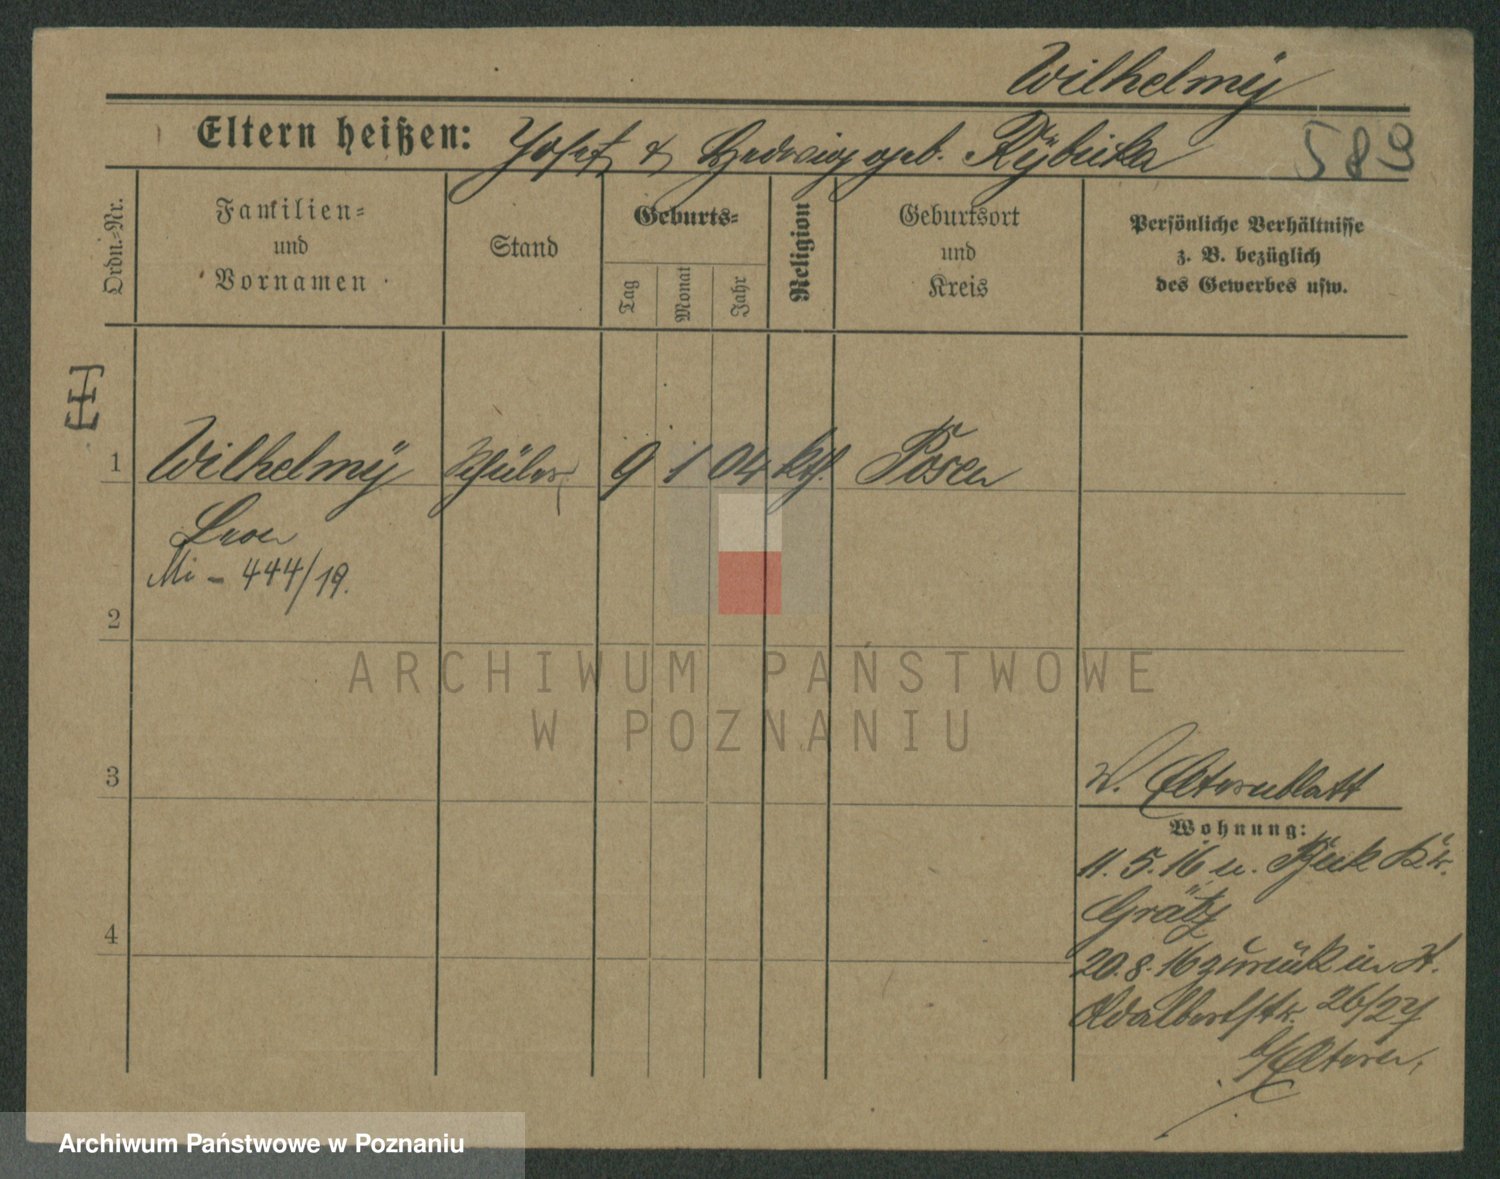 Wilhelmÿ
Eltern heißen: Josef & Hedwig geb. Rÿbicka
589
Ordn.-Nr.
Familien-
und
Vornamen
Stand
Geburts-
Tag
Monat
Jahr
Religion
Geburtsort
und
Kreis
Persönliche Verhältnisse
z. B. bezüglich
des Gewerbes usw.
1 Wilhelmÿ Schüler 9 1 04 kth. Posen
Leon
Mi - 444/19.
2
3
4
W. Elternblatt
Wohnung:
11.5.16 n. Kr.
Grätz
20.8.16 zurück in St.
Adalbertstr. 26/27
b/Eltern.
ARCHIWUM PAŃSTWOWE
W POZNANIU
Archiwum Państwowe w Poznaniu